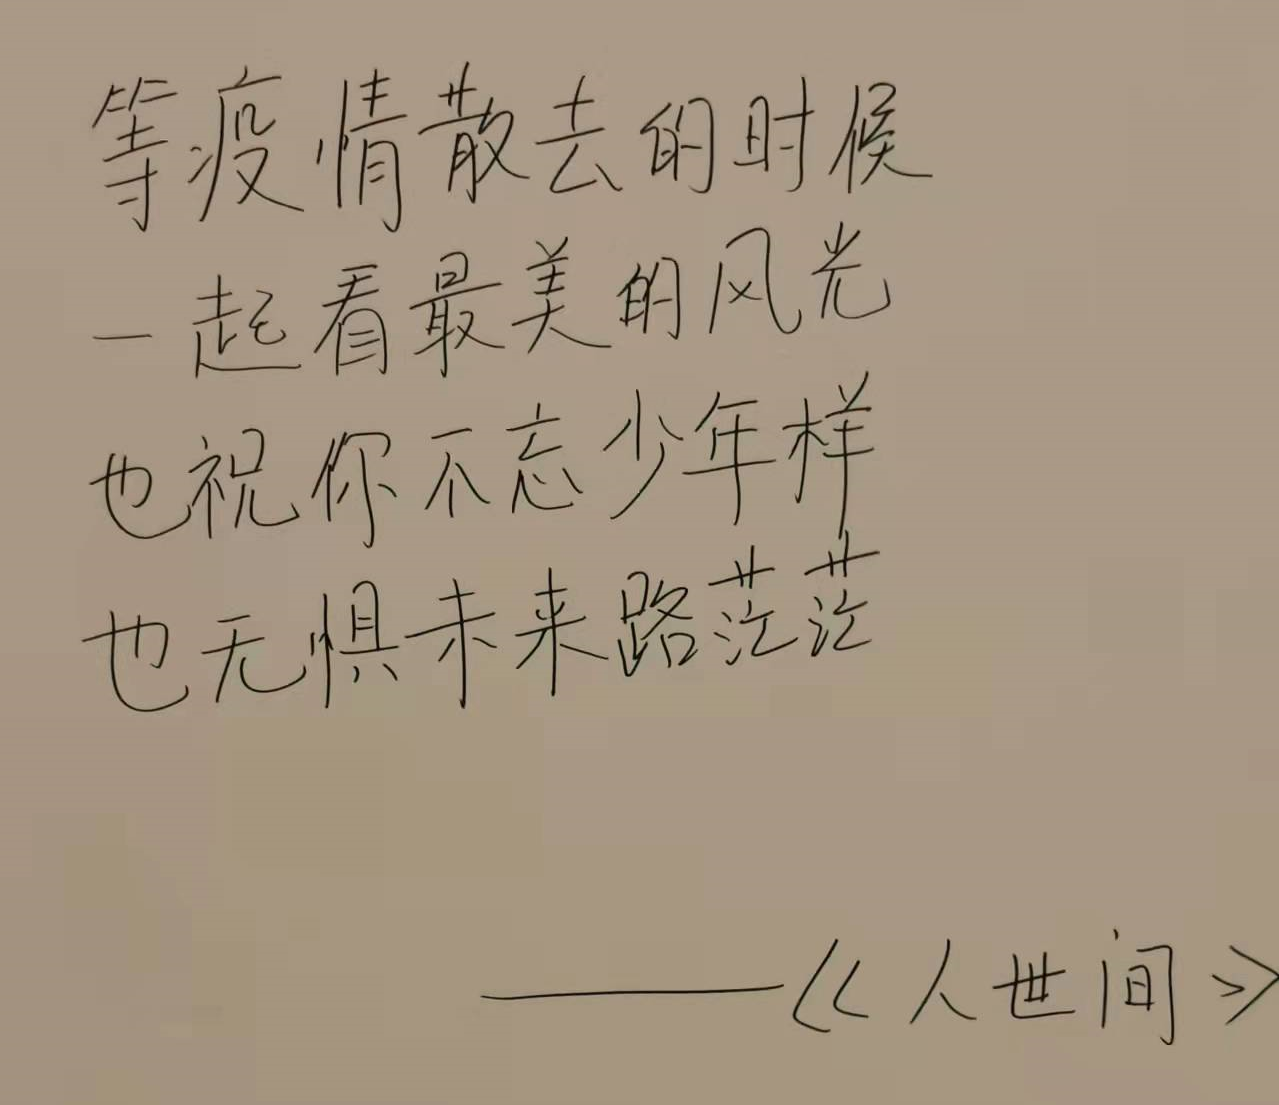 等疫情散去的时候
一起看最美的风光
也祝你不忘少年样
也无惧未来路茫茫
——《人世间》